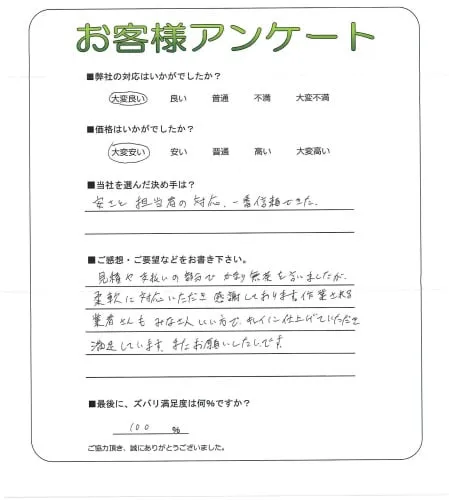 お客様アンケート
■弊社の対応はいかがでしたか？
大変良い 良い 普通 不満 大変不満
■価格はいかがでしたか？
大変安い 安い 普通 高い 大変高い
■当社を選んだ決め手は？
安さと 担当者の対応、一番信頼できた。
■ご感想・ご要望などをお書き下さい。
見積や支払いの部分で かなり無理を言いましたが、
柔軟に対応いただき 感謝しております。作業される
業者さんも みなさんいい方で、キレイに仕上げていただき
満足しています。またお願いしたいです。
■最後に、ズバリ満足度は何%ですか？
100 %
ご協力頂き、誠にありがとうございました。